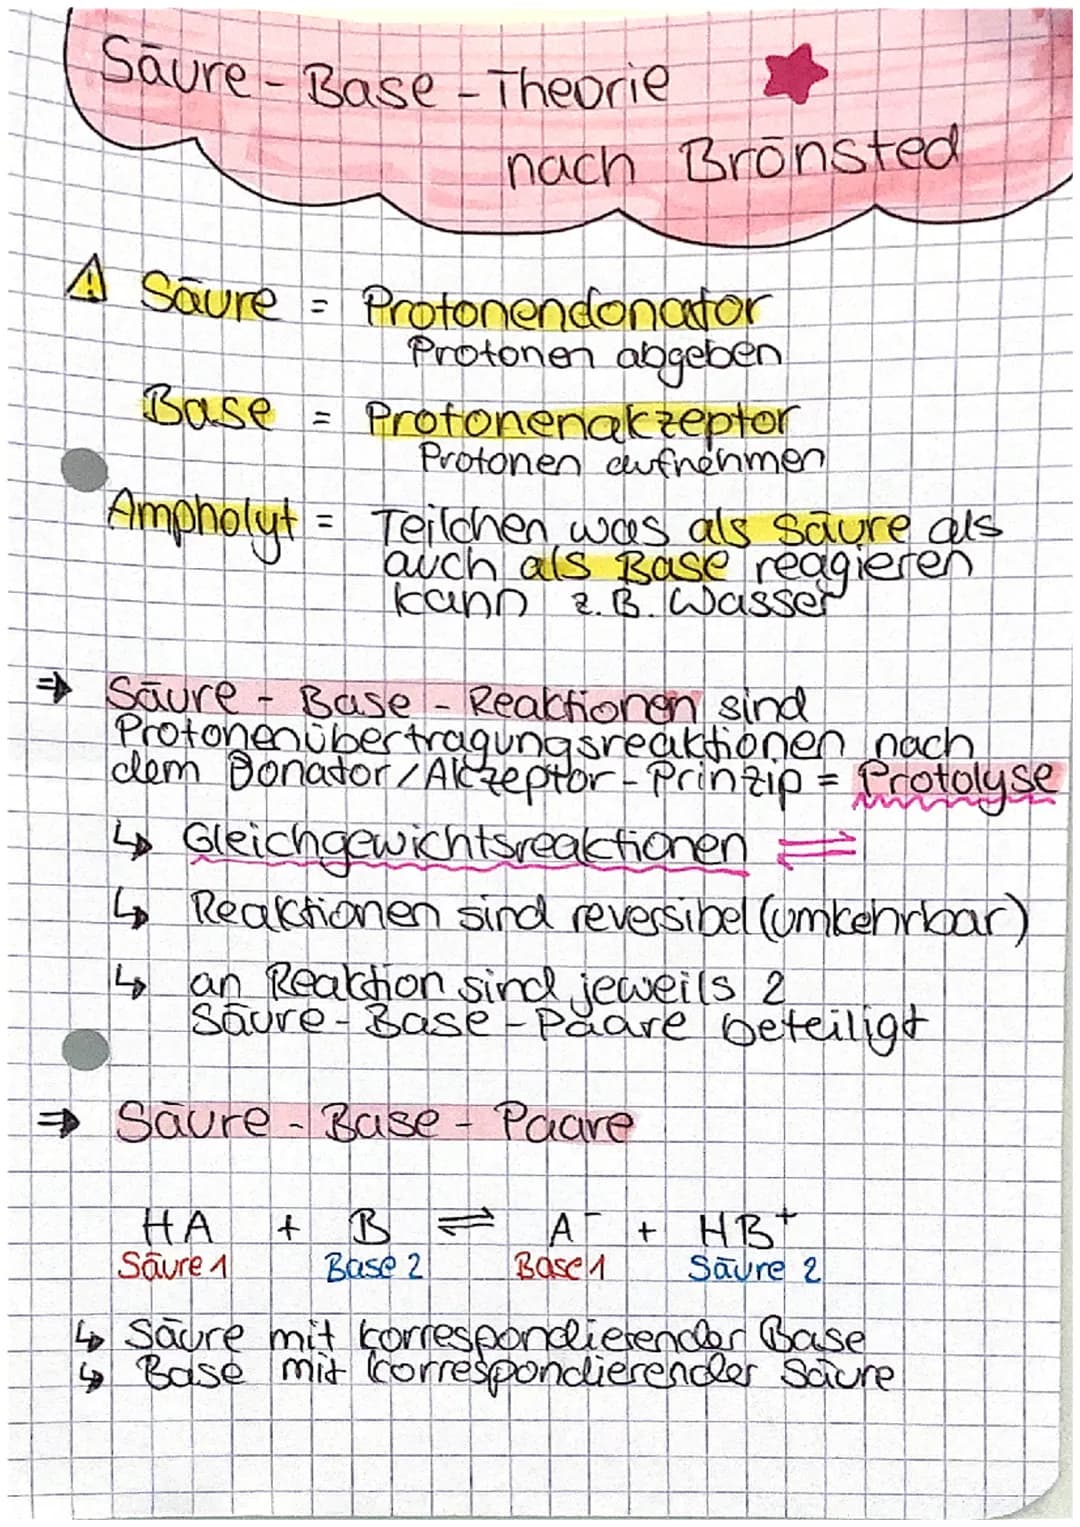 Säure - Base - Theorie
nach Brönsted
Säure = Protonendonator
Protonen abgeben
Base = Protonenakzeptor
Protonen aufnehmen
Ampholyt = Teilchen was als Säure als
auch als Base reagieren
kann z.B. Wasser
⇒ Säure - Base - Reaktionen sind
Protonenübertragungsreaktionen nach
dem Donator/Akzeptor-Prinzip = Protolyse
↳ Gleichgewichtsreaktionen ⇌
↳ Reaktionen sind reversibel (umkehrbar)
↳ an Reaktion sind jeweils 2
Säure-Base-Paare beteiligt
⇒ Säure - Base - Paare
HA + B ⇌ A⁻ + HB⁺
Säure 1 Base 2 Base 1 Säure 2
↳ Säure mit korrespondierender Base
↳ Base mit korrespondierender Säure